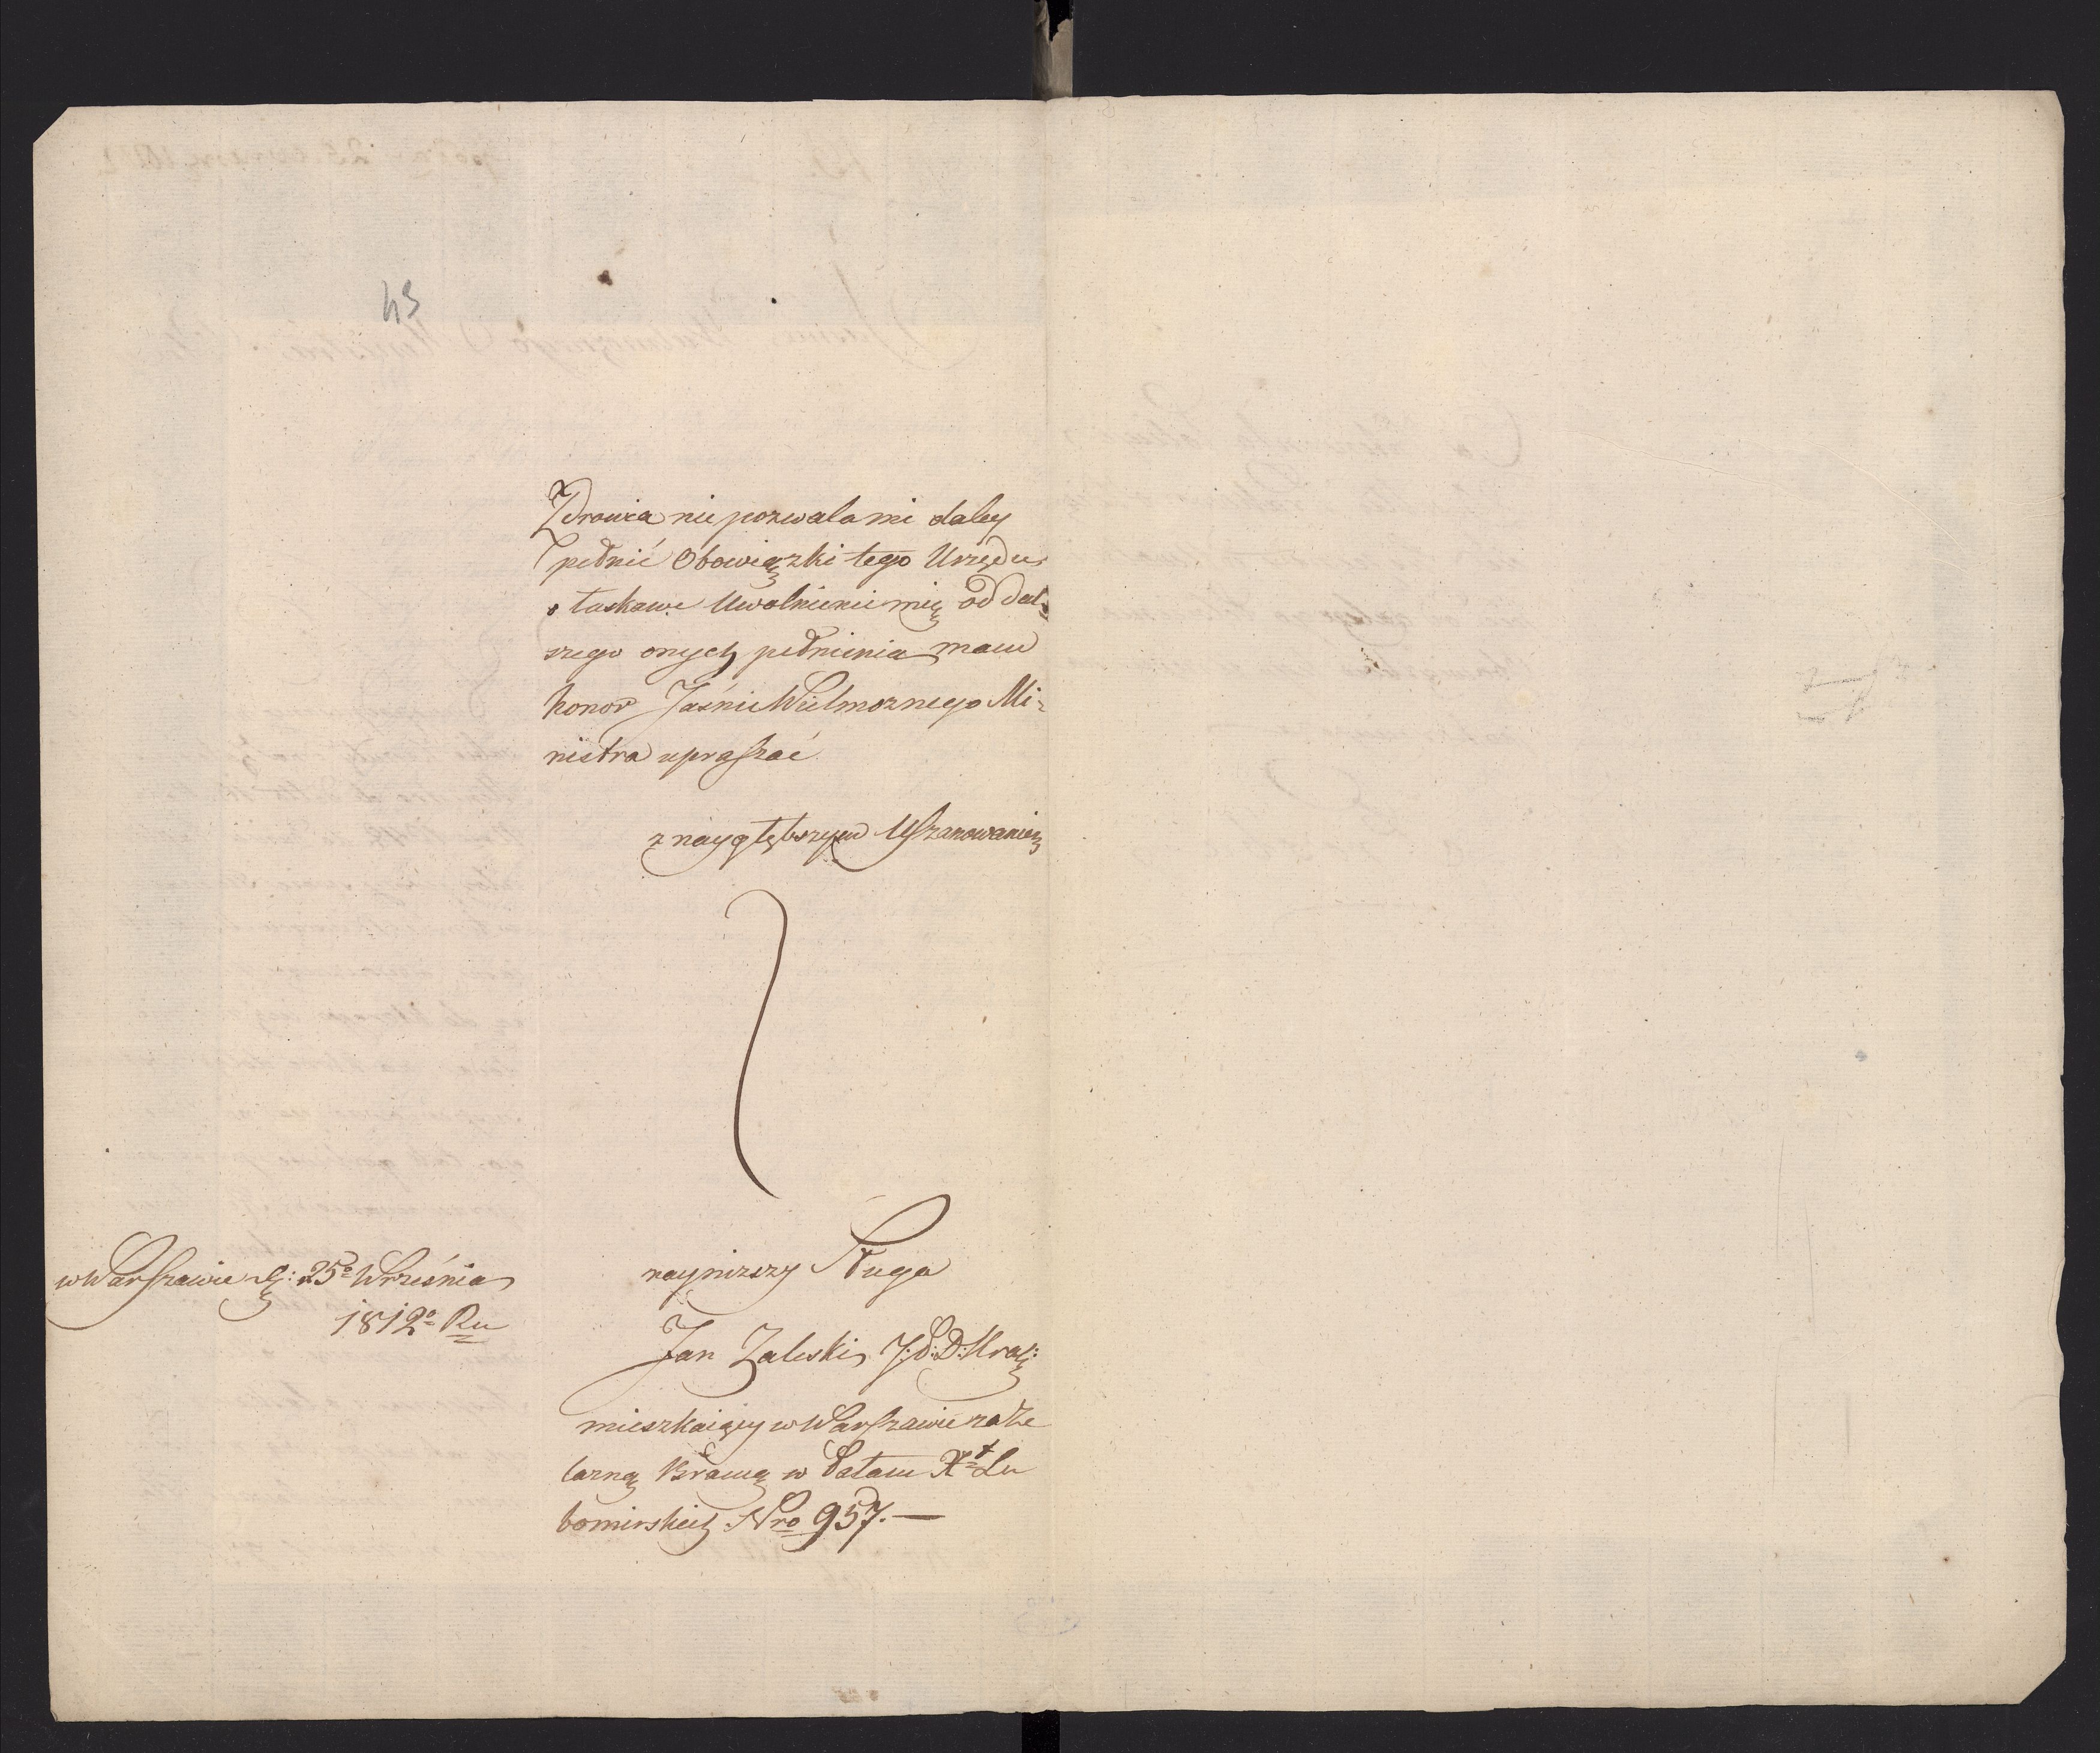 45
Zdrowia nie pozwala mi daley
pełnić Obowiązki tego Urzędu
o łaskawe Uwolnienie mię od dal-
szego onych pełnienia mam
honor Jaśnie Wielmoznego Mi-
nistra upraszać
z naygłębszym Uszanowaniem
nayniższy Sługa
w Warszawie d: 25º Września
1812º Ru
Jan Zaleski
mieszkaiący w Warszawie za Że
lazną Bramą w Pałacu Xt Lu
bomirskich Nro 957.—